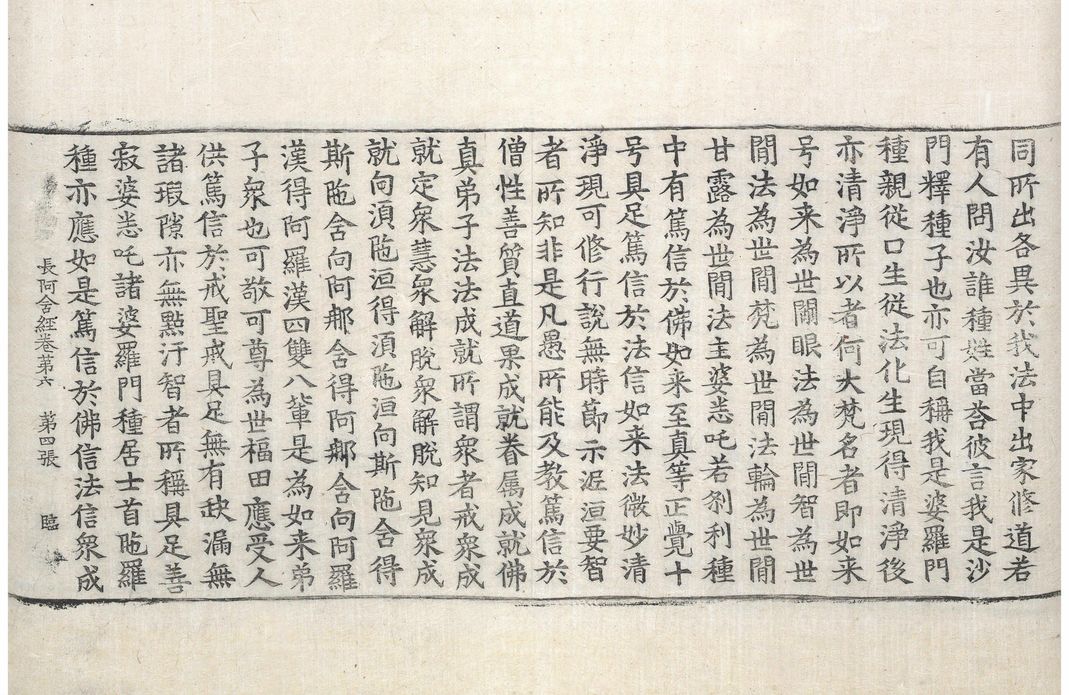 同所出各異於我法中出家修道若
有人問汝誰種姓當荅彼言我是沙
門釋種子也亦可自稱我是婆羅門
種親從口生從法化生現得清淨後
亦清淨所以者何大梵名者即如来
号如来為世閒眼法為世閒智為世
閒法為世閒梵為世閒法輪為世閒
甘露為世閒法主婆悉吒若刹利種
中有篤信於佛如来至真等正覺十
号具足篤信於法信如来法微妙清
淨現可修行說無時節示泥洹要智
者所知非是凡愚所能及教篤信於
僧性善質直道果成就眷属成就佛
真弟子法法成就所謂衆者戒衆成
就定衆慧衆解脫衆解脫知見衆成
就向湏陁洹得湏陁洹向斯陁舍得
斯陁舍向阿那舍得阿那舍向阿羅
漢得阿羅漢四雙八輩是為如来弟
子衆也可敬可尊為世福田應受人
供篤信於戒聖戒具足無有缺漏無
諸瑕隙亦無點汙智者所稱具足善
寂婆悉吒諸婆羅門種居士首陁羅
種亦應如是篤信於佛信法信衆成
長阿含經卷第六 第四張 臨